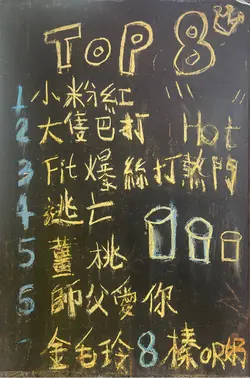 TOP 8
1 小粉紅
2 大隻巴打 Hot
3 Fit 爆絲打熱門
4 逃亡
5 薑桃
6 師父愛你
7 金毛玲 8 榛OR奶